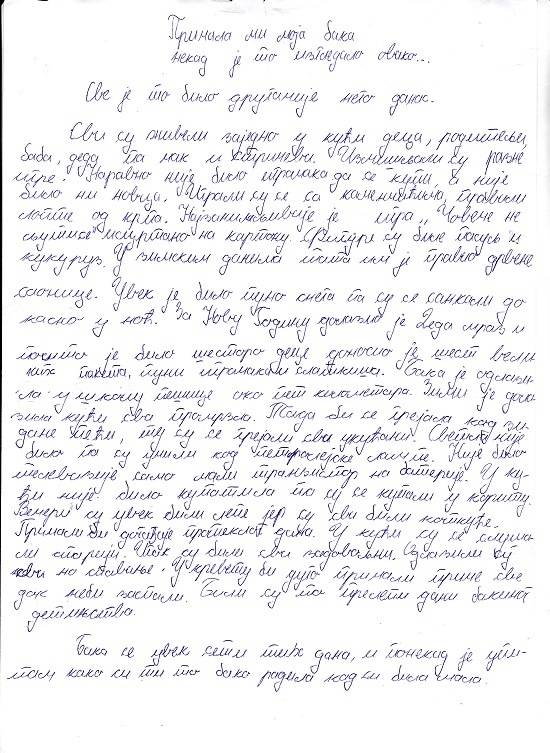 Причала ми моја бака
некад је то изгледало овако...
Све је то било другачије него данас.
Сви су живели заједно у кући деца, родитељи,
баба, деда па чак и стричеви. Измишљали су разне
игре. Наравно није било играчака да се купи, а није
било ни новца. Играли су се са каменчићима, правили
лопте од крпа. Најзанимљивије је игра „Човече не
љутисе" исцртано на картону. Фигуре су биле пасуљ и
кукуруз. У зимским данима тата им је правио дрвене
саонице. Увек је било пуно снега па су се санкали до
касно у ноћ. За Нову Годину долазио је Деда мраз и
пошто је било шесторо деце доносио је шест вели
ких пакета, пуни играчака и слаткиша. Бака је одлази
ла у школу пешице око пет километара. Зими је дола
зила кући сва промрзла. Тада би се грејала код зи
дане пећи, ту су се грејали сви укућани. Светла није
било па су учили код петролејске лампе. Није било
телевизије, само мали транзистор на батерије. У ку
ћи није било купатила па су се купали у кориту.
Вечери су увек биле лепе јер су сви били код куће.
Причали би догађаје протеклог дана. У кући су се слуша
ли старији. Ипак су били сви задовољни. Одлазили су
на спавање. У кревету би дуго причали приче све
док неби заспали. Били су то прелепи дани бакиног
детињства.
Бака се увек сети тих дана, и понекад је упи-
там како си ти то бако радила кад си била мала.